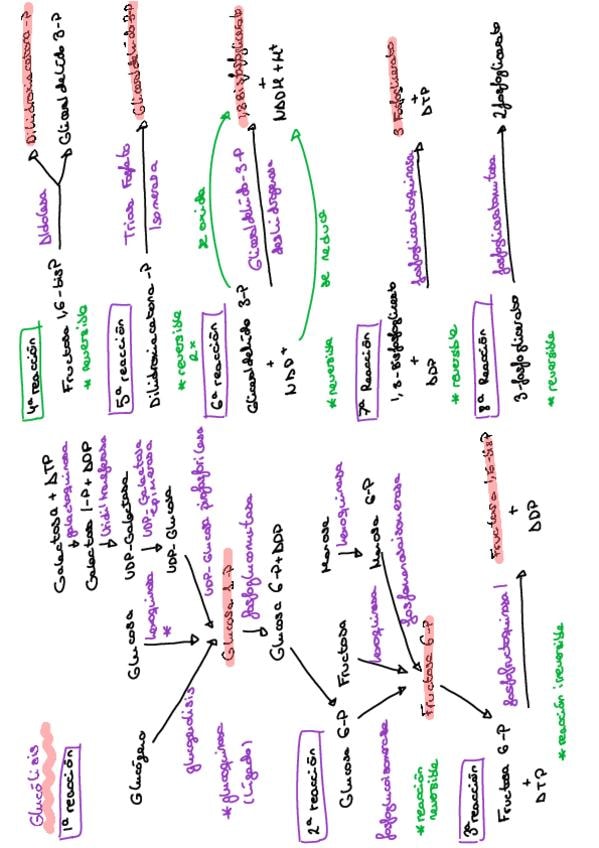 Glucólisis
1ª reacción
Glucógeno
glucogenólisis
*glucoquinasa
(hígado)
Glucosa
hexoquinasa
*
Galactosa + ATP
galactoquinasa
Galactosa 1-P + ADP
Uridiltransferasa
UDP-Galactosa
UDP-Galactosa
Epimerasa
UDP-Glucosa
UDP-Glucosa pirofosforilasa
Glucosa 1-P
fosfoglucomutasa
Glucosa 6-P + ADP
2ª reacción
Glucosa 6-P
fosfoglucoisomerasa
*reacción
reversible
Fructosa
hexoquinasa
Manosa
hexoquinasa
Manosa 6-P
fosfomanoisomerasa
Fructosa 6-P
3ª reacción
Fructosa 6-P
+
ATP
fosfofructoquinasa 1
Fructosa 1,6-bisP
+
ADP
*reacción irreversible
4ª reacción
Fructosa 1,6-bisP
*reversible
Aldolasa
Dihidroxiacetona-P
Gliceraldehído 3-P
5ª reacción
Dihidroxiacetona-P
*reversible
2x
Triosa Fosfato
Isomerasa
Gliceraldehído 3-P
6ª reacción
Gliceraldehído 3-P
+
NAD+
*reversible
se oxida
Gliceraldehído-3-P
deshidrogenasa
se reduce
1,3 Bisfosfoglicerato
+
NADH + H+
7ª Reacción
1,3-Bisfosfoglicerato
+
ADP
*reversible
fosfogliceratoquinasa
3 Fosfoglicerato
+
ATP
8ª Reacción
3-fosfoglicerato
*reversible
fosfogliceratomutasa
2 fosfoglicerato